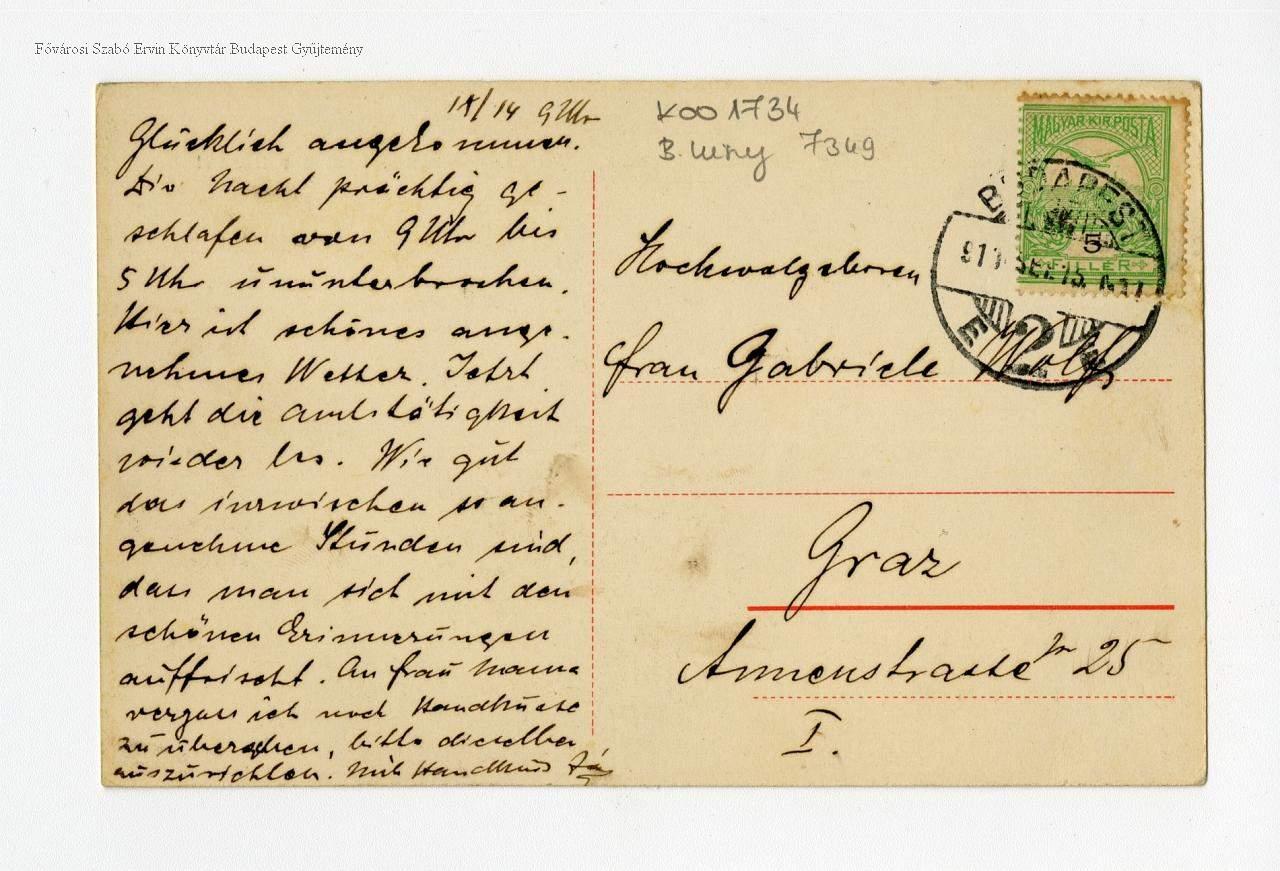 Fővárosi Szabó Ervin Könyvtár Budapest Gyűjtemény
IX/14 9 Uhr
Glücklich angekommen.
Die Nacht prächtig ge-
schlafen von 9 Uhr bis
5 Uhr ununterbrochen.
Hier ist schönes ange-
nehmes Wetter. Jetzt
geht die Amtstätigkeit
wieder los. Wie gut
das inzwischen so an-
genehme Stunden sind,
dass man sich mit den
schönen Erinnerungen
auffrischt. An Frau Mama
vergass ich noch Handküsse
zu übergeben, bitte dieselben
auszurichten. Mit Handkuss
K001734
B. 7349
MAGYAR·KIR·POSTA
5
FILLÉR
BUDAPEST
2
Hochwolgeboren
Frau Gabriele Wolf
Graz
Annenstrasse № 25
I.